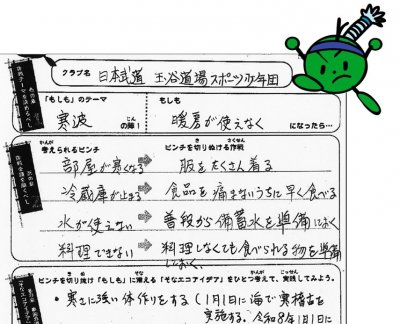 クラブ名 日本武道 玉谷道場スポーツ少年団
「もしも」のテーマ
寒波の陣!
もしも
暖房が使えなくになったら…
考えられるピンチ
ピンチを切りぬける作戦
部屋が寒くなる 服をたくさん着る
冷蔵庫が止まる 食品を痛まないうちに早く食べる
水が使えない 普段から備蓄水を準備しておく
料理できない 料理しなくても食べられる物を準備
しておく。
ピンチを切り抜け「もしも」に備える「そなえコアイデア」をひとつ考えて、実践してみよう。
・寒さに強い体作りをする(1月1日に海で寒稽古を
実施する。令和8年1月1日に